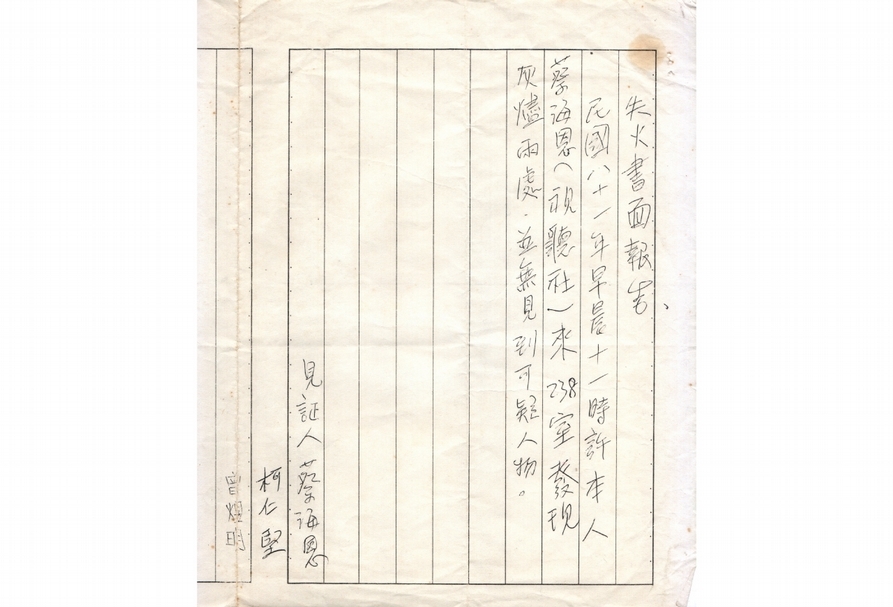 失火書面報告、
民國八十一年早晨十一時許本人
蔡海恩(視聽社)來238室發現
灰燼兩處.並無見到可疑人物。
見証人 蔡海恩
柯仁堅
曾煜明